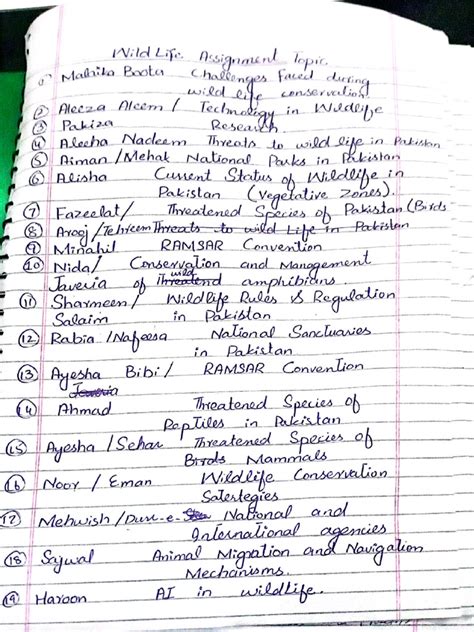 Wild Life Assignment Topic
① Mahika Boota Challenges Faced during
wild life conservation
② Aleeza Aleem / Technology in Wildlife
③ Pakiza Research.
④ Aleeha Nadeem Threats to wild life in Pakistan
⑤ Aiman / Mehak National Parks in Pakistan
⑥ Alisha Current Status of Wildlife in
Pakistan (Vegetative Zones).
⑦ Fazeelat / Threatened Species of Pakistan (Birds
⑧ Arooj / Tehreem Threats to wild Life in Pakistan
⑨ Minahil RAMSAR Convention
⑩ Nida / Conservation and Management
Javeria of wild amphibians.
⑪ Sharmeen / Wildlife Rules & Regulation
Salaim in Pakistan
⑫ Rabia / Nafeesa National Sanctuaries
in Pakistan
⑬ Ayesha Bibi / RAMSAR Convention
⑭ Ahmad Threatened Species of
Reptiles in Pakistan
⑮ Ayesha / Sehar Threatened Species of
Birds Mammals
⑯ Noor / Eman Wildlife Conservation
Satestegies
⑰ Mehwish / Durr-e- National and
International agencies
⑱ Sajwal Animal Migration and Navigation
Mechanisms.
⑲ Haroon AI in wildlife.